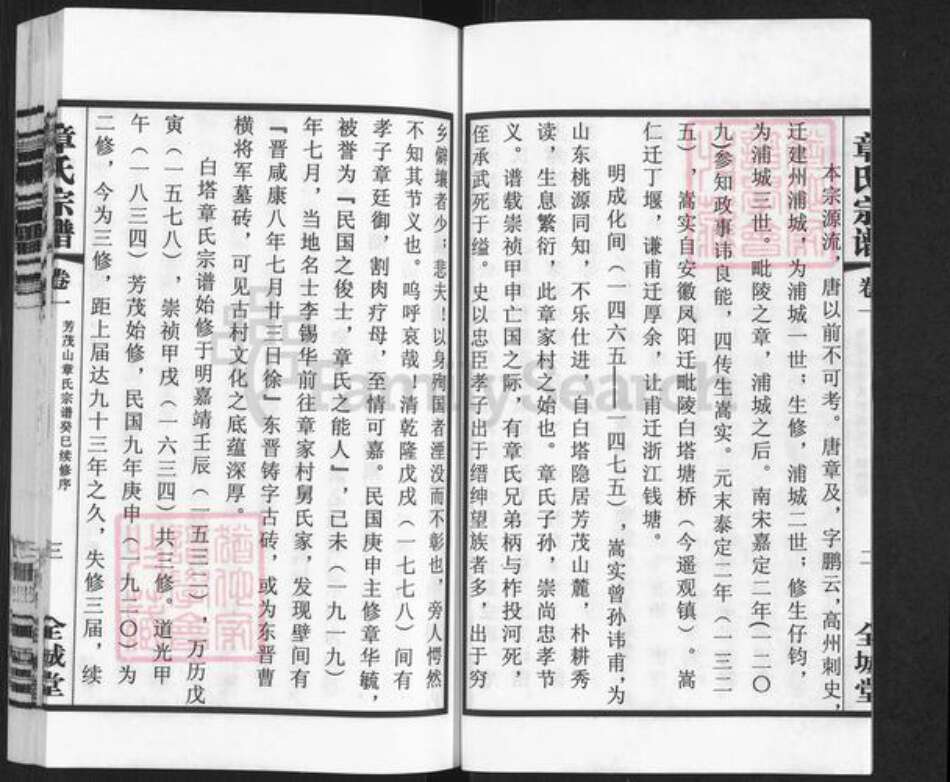 章氏宗谱
卷一
二
全城堂
本宗源流，唐以前不可考。唐章及，字鹏云，高州刺史，
迁建州浦城，为浦城一世；生修，浦城二世；修生仔钧，
为浦城三世。毗陵之章，浦城之后。南宋嘉定二年（一二〇
九）参知政事讳良能，四传生嵩实。元末泰定二年（一三二
五），嵩实自安徽凤阳迁毗陵白塔塘桥（今遥观镇）。嵩
仁迁丁堰，谦甫迁厚余，让甫迁浙江钱塘。
明成化间（一四六五——一四七五），嵩实曾孙讳甫，为
山东桃源同知，不乐仕进，自白塔隐居芳茂山麓，朴耕秀
读，生息繁衍，此章家村之始也。章氏子孙，崇尚忠孝节
义。谱载崇祯甲申亡国之际，有章氏兄弟柄与柞投河死，
侄承武死于缢。史以忠臣孝子出于缙绅望族者多，出于穷
乡僻壤者少；悲夫！以身殉国者湮没而不彰也，旁人愕然
不知其节义也。呜呼哀哉！清乾隆戊戌（一七七八）间有
孝子章廷御，割肉疗母，至情可嘉。民国庚申主修章华毓，
被誉为『民国之俊士，章氏之能人』，己未（一九一九）
年七月，当地名士李锡华前往章家村舅氏家，发现壁间有
『晋咸康八年七月廿三日徐』东晋铸字古砖，或为东晋曹
横将军墓砖，可见古村文化之底蕴深厚。
白塔章氏宗谱始修于明嘉靖壬辰（一五三二），万历戊
寅（一五七八），崇祯甲戌（一六三四）共三修。道光甲
午（一八三四）芳茂始修，民国九年庚申（一九二〇）为
二修，今为三修，距上届达九十三年之久，失修三届，续
章氏宗谱
卷一
芳茂山章氏宗谱癸巳续修序
三
全城堂
FamilySearch